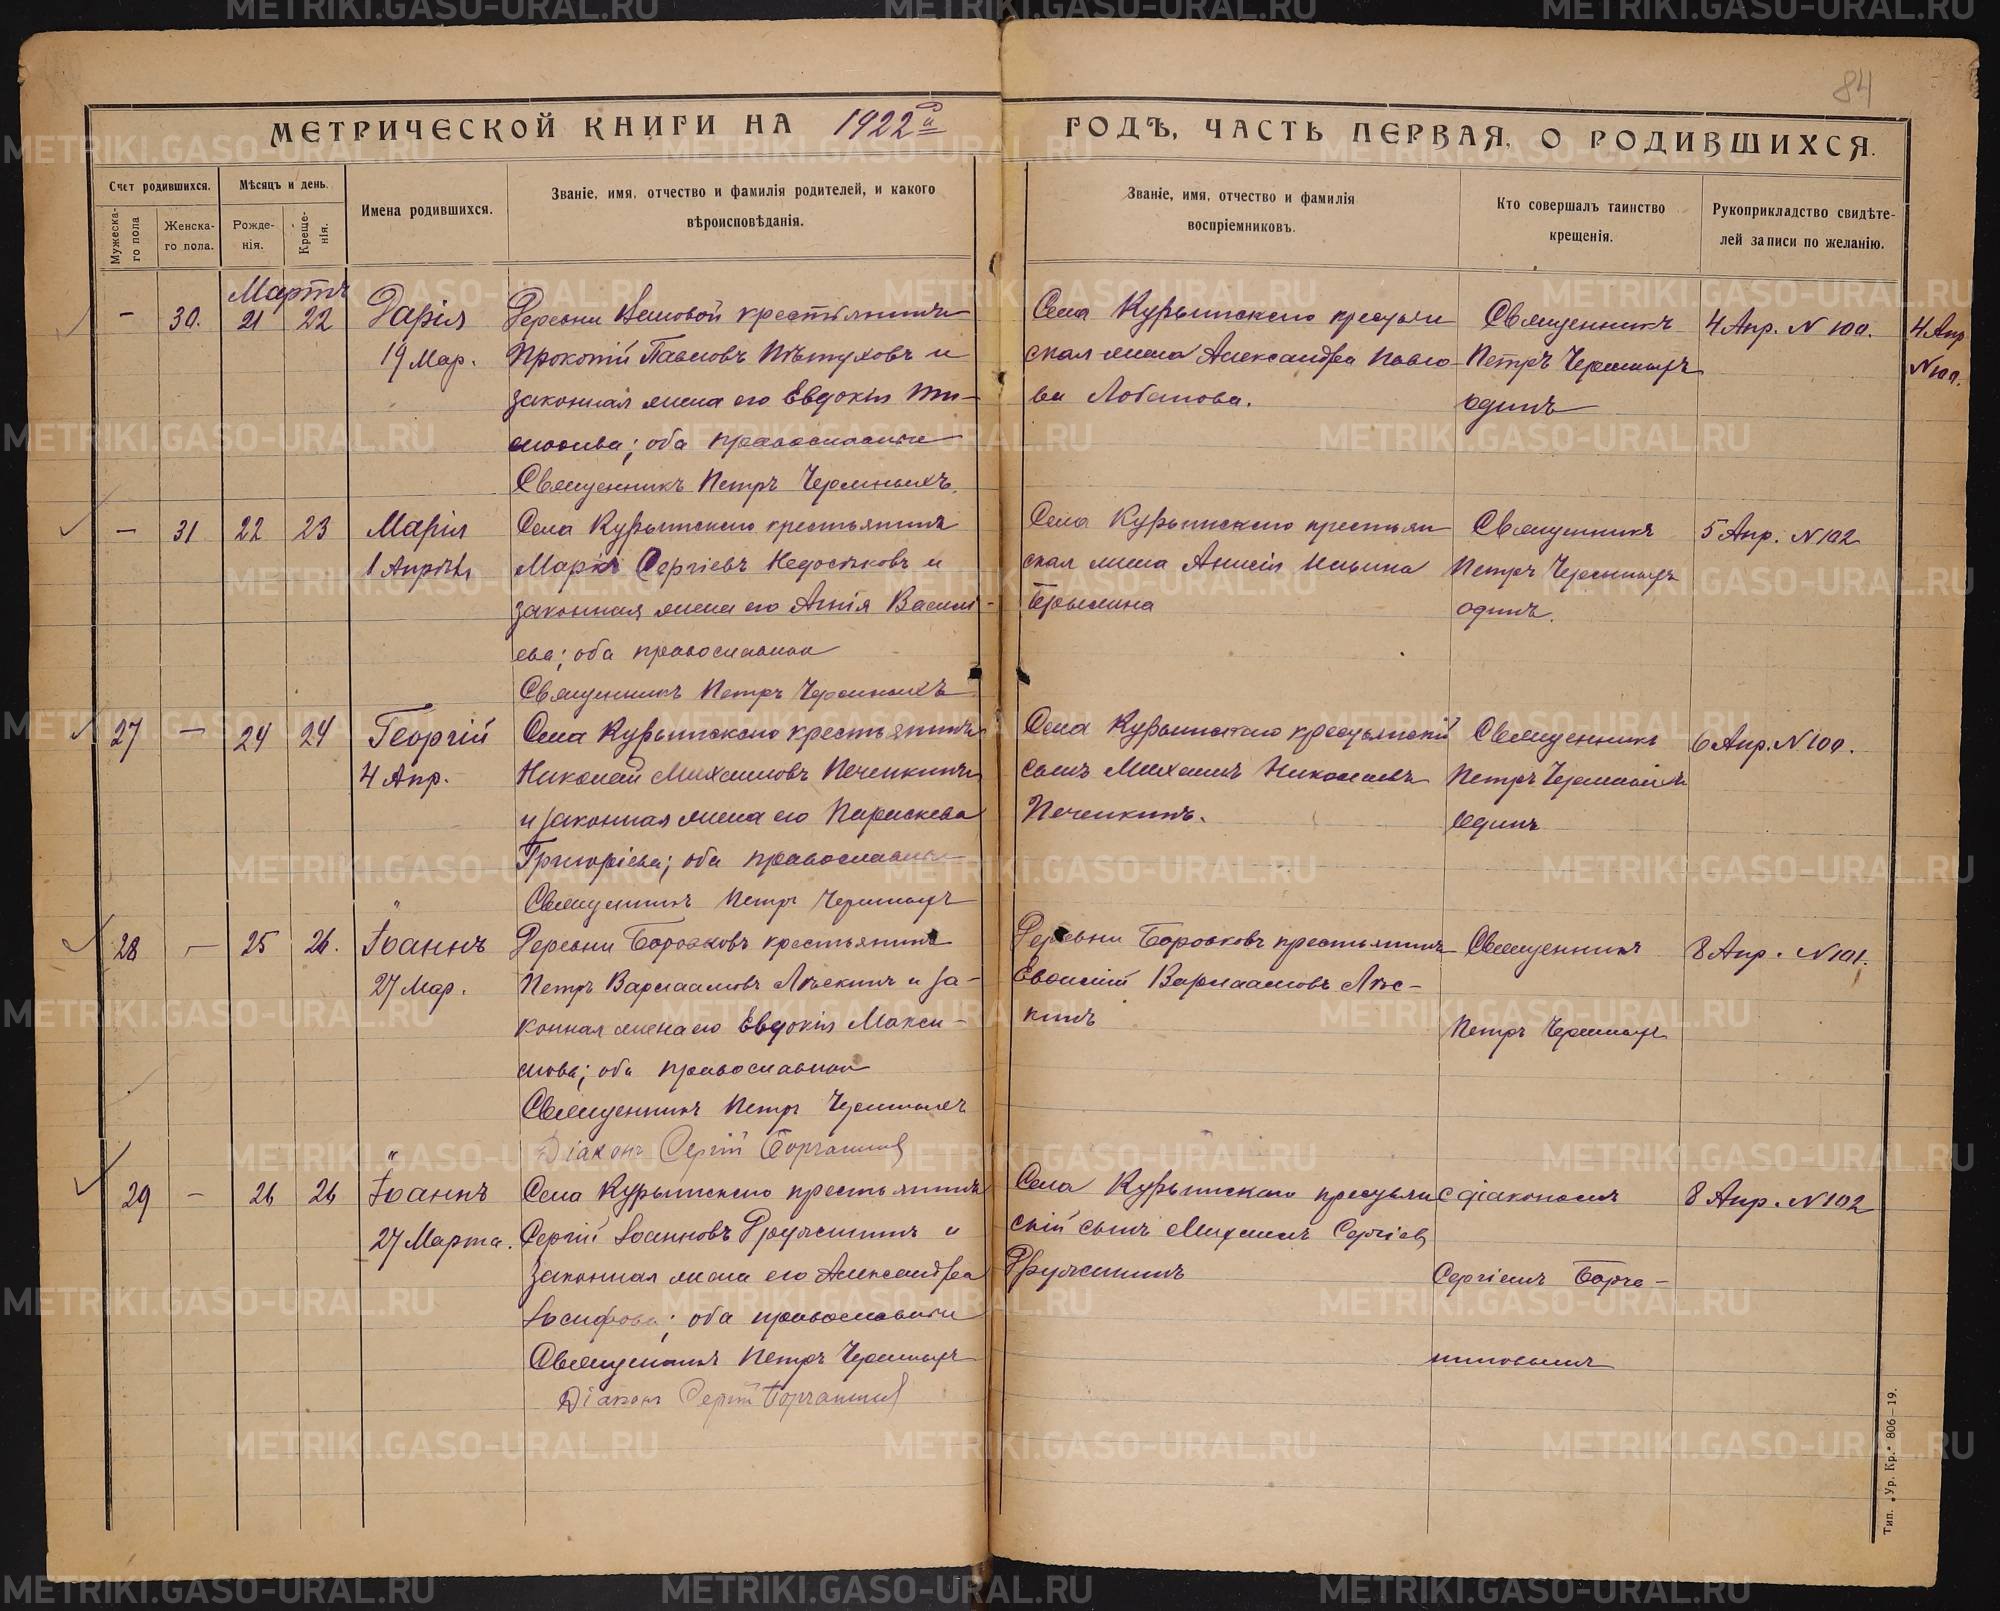 84
МЕТРИЧЕСКОЙ КНИГИ НА 1922й ГОДЪ, ЧАСТЬ ПЕРВАЯ, О РОДИВШИХСЯ.
Счет родившихся.
Мужеска-
го пола
Женска-
го пола.
Мѣсяцъ и день.
Рожде-
нія.
Креще-
нія.
Имена родившихся.
Званіе, имя, отчество и фамилія родителей, и какого
вѣроисповѣданія.
Званіе, имя, отчество и фамилія
воспріемниковъ.
Кто совершалъ таинство
крещенія.
Рукоприкладство свидѣте-
лей записи по желанію.
Мартъ
– 30. 21 22
Дарія
19 Мар.
Деревни крестьянинъ
Прокопій Павловъ Пѣтуховъ и
законная жена его Евдокія
оба православные
Священникъ Петръ Черемныхъ.
Села Курьинскаго крестьян
ская жена Александра Павло-
ва Лобанова.
Священникъ
Петръ Черемныхъ
одинъ
4 Апр. N 100.
4 Апр
N 100.
– 31 22 23
Марія
1 Апрѣля
Села Курьинскаго крестьянинъ
Маркъ Сергіевъ Недосѣковъ и
законная жена его Агнія Василь-
ева; оба православные
Священникъ Петръ Черемныхъ
Села Курьинскаго крестьян
ская жена Анисія Ильина
Священникъ
Петръ Черемныхъ
одинъ.
5 Апр. N 102
27 – 24 24
Георгій
4 Апр.
Села Курьинскаго крестьянинъ
Николай Михаиловъ Печенкинъ
и законная жена его Параскева
Григоріева; оба православные
Священникъ Петръ Черемныхъ
Села Курьинскаго крестьянскій
сынъ Михаилъ Николаевъ
Печенкинъ.
Священникъ
Петръ Черемныхъ
одинъ
6 Апр. N 100.
28 – 25 26.
Іоаннъ
27 Мар.
Деревни Боровковъ крестьянинъ
Петръ Варлаамовъ Лѣскинъ и за-
конная жена его Евдокія Макси-
мова; оба православные
Священникъ Петръ Черемныхъ
Діаконъ Сергій
Деревни Боровковъ крестьянинъ
Варлаамовъ Лѣс-
кинъ
Священникъ
Петръ Черемныхъ
8 Апр. N 101.
29 – 26 26
Іоаннъ
27 Марта.
Села Курьинскаго крестьянинъ
Сергій Іоанновъ и
законная жена его Александра
Іосифова; оба православные
Священникъ Петръ Черемныхъ
Діаконъ Сергій
Села Курьинскаго крестьян
скій сынъ Михаилъ Сергіевъ
с діакономъ
Сергіемъ
8 Апр. N 102
Тип. „Ур. Кр.“ 806—19.
METRIKI.GASO-URAL.RU